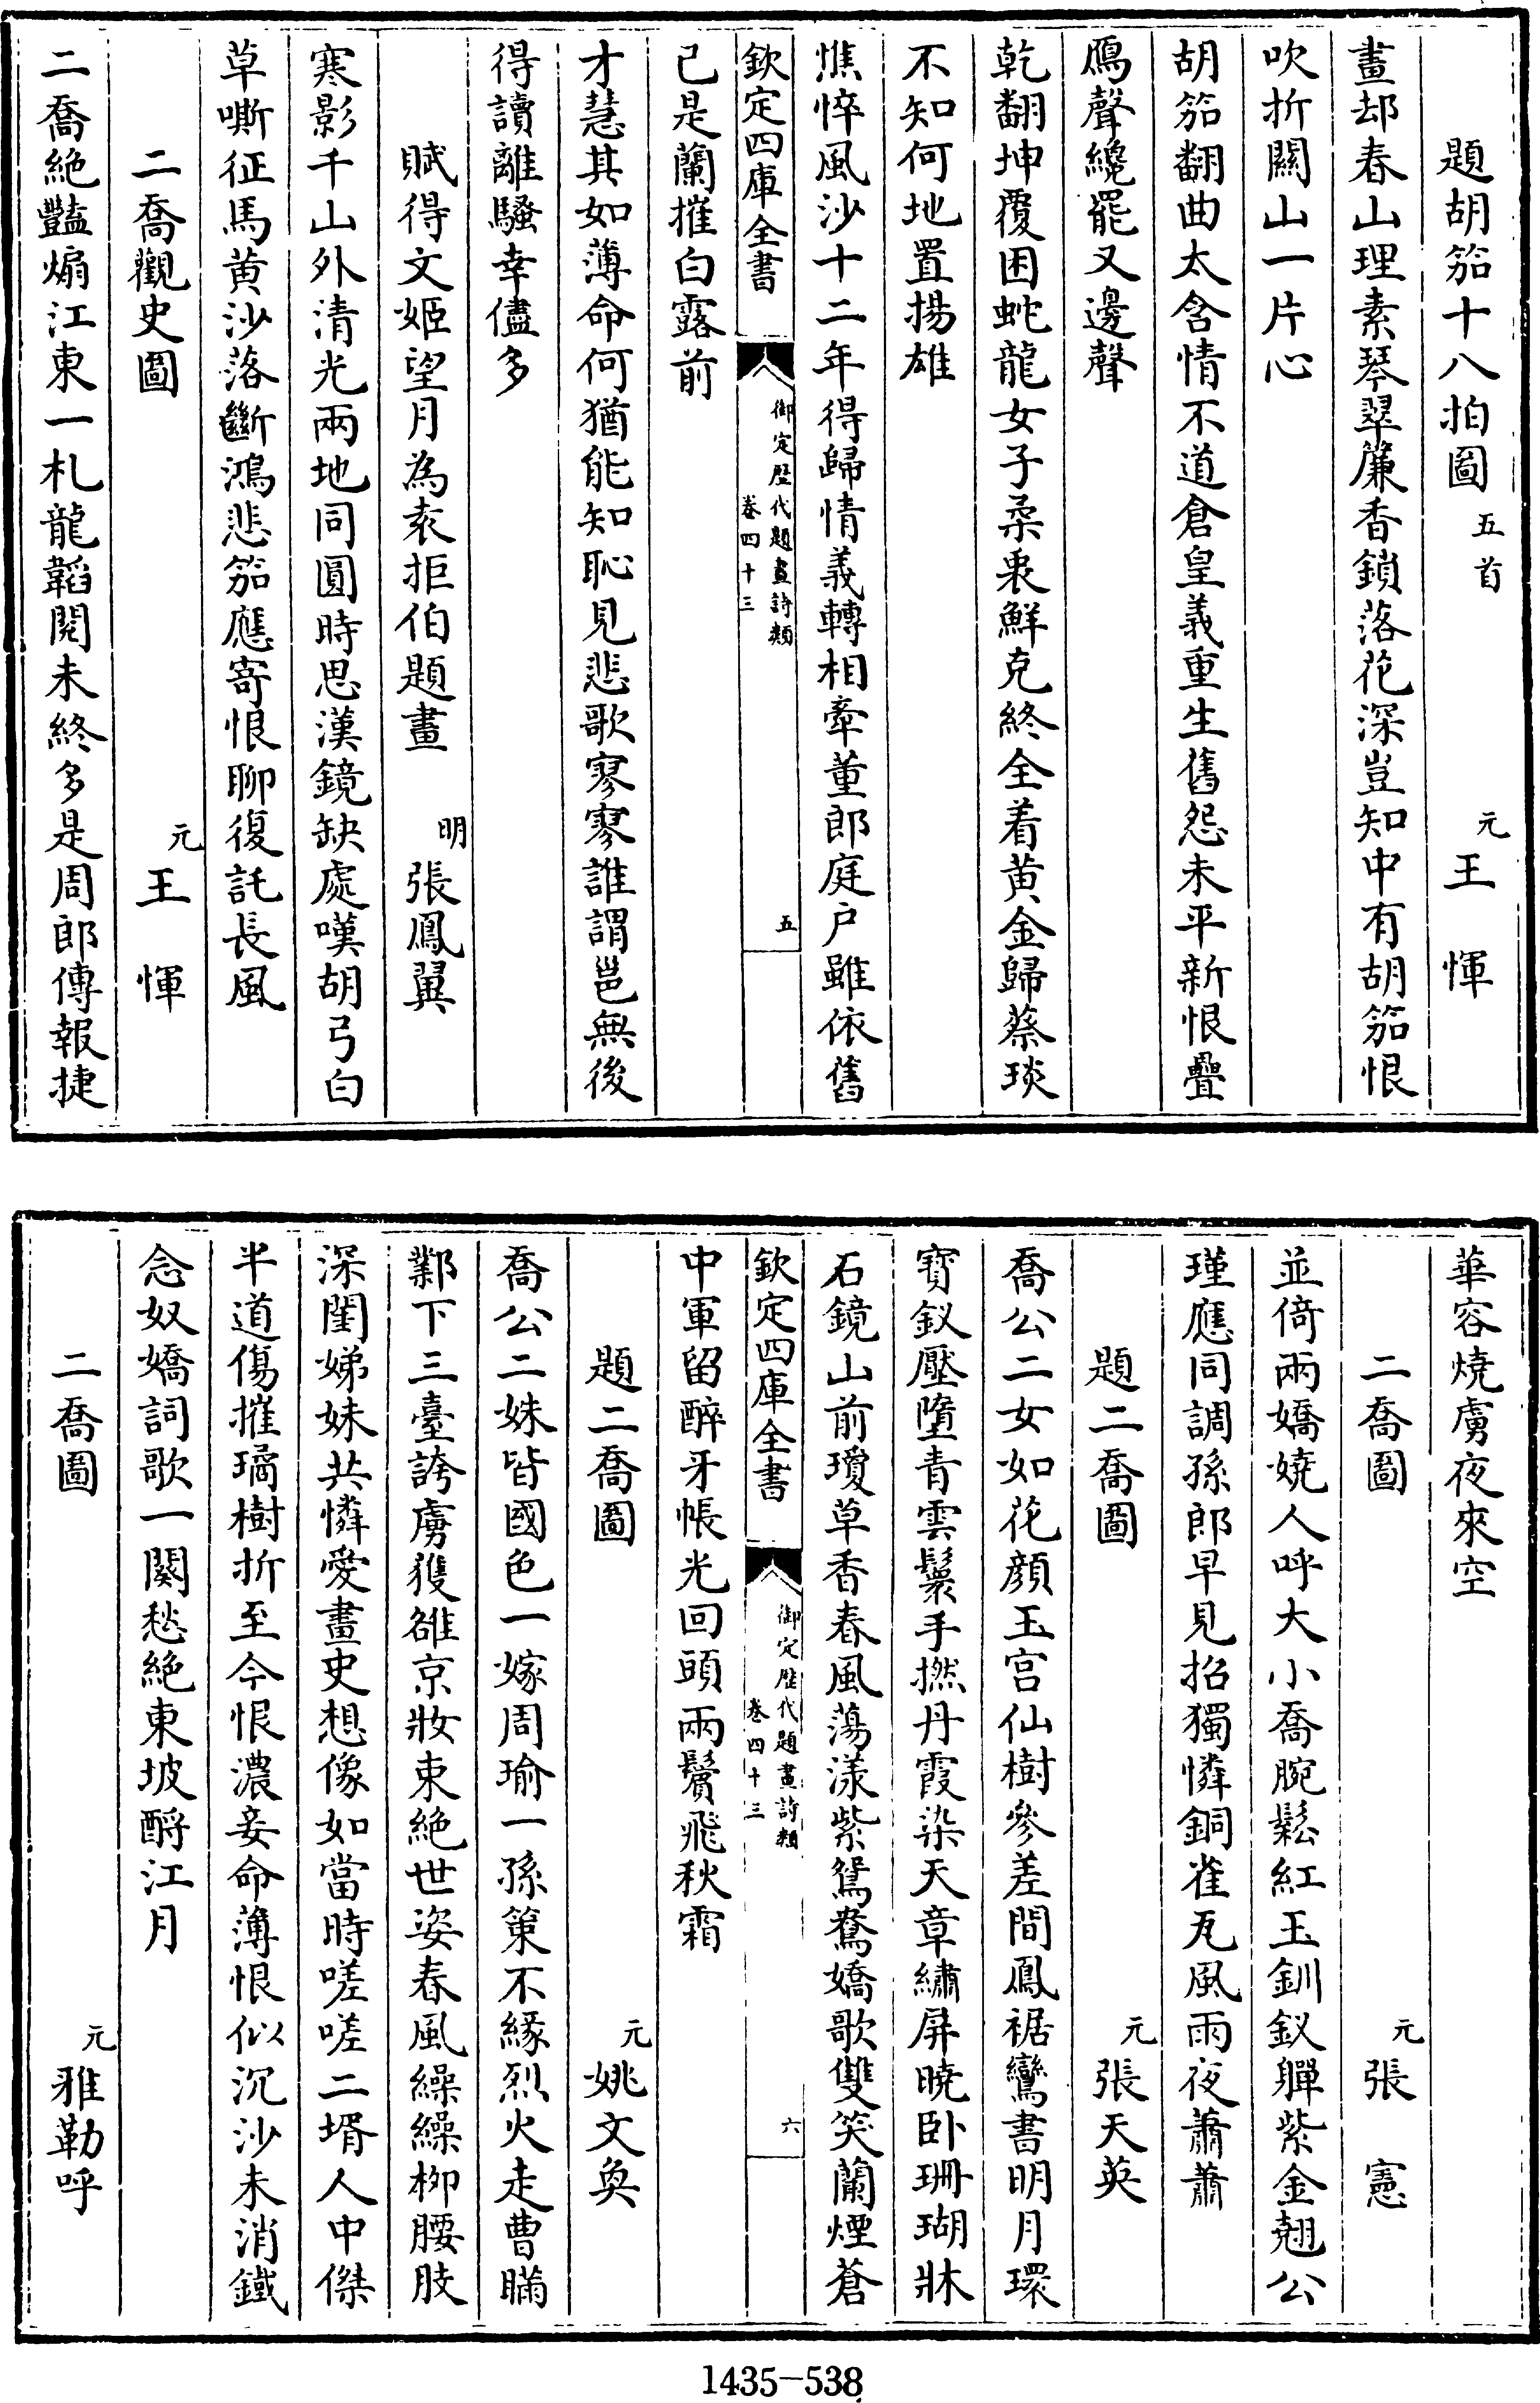 題胡笳十八拍圖 五首 元 王惲
畫却春山理素琴翠簾香鎖落花深豈知中有胡笳恨
吹折關山一片心
胡笳翻曲太含情不道倉皇義重生舊怨未平新恨疊
鴈聲纔罷又邊聲
乾翻坤覆困蛇龍女子柔衷鮮克終全着黄金歸蔡琰
不知何地置揚雄
憔悴風沙十二年得歸情義轉相牽董郎庭户雖依舊
欽定四庫全書 御定歴代題畫詩類 卷四十三 五
已是蘭摧白露前
才慧其如薄命何猶能知恥見悲歌寥寥誰謂邕無後
得讀離騷幸儘多
賦得文姬望月為袁拒伯題畫 明 張鳳翼
寒影千山外清光兩地同圓時思漢鏡缺處嘆胡弓白
草嘶征馬黄沙落斷鴻悲笳應寄恨聊復託長風
二喬觀史圖 元 王惲
二喬絶豔煽江東一札龍韜閱未終多是周郎傳報捷
華容燒虜夜來空
二喬圖 元 張憲
並倚兩嬌嬈人呼大小喬腕鬆紅玉釧釵嚲紫金翹公
瑾應同調孫郎早見招獨憐銅雀瓦風雨夜蕭蕭
題二喬圖 元 張天英
喬公二女如花顔玉宫仙樹參差間鳳裾鸞書明月環
寳釵壓墮青雲鬟手撚丹霞染天章繡屏曉卧珊瑚牀
石鏡山前瓊草香春風蕩漾紫鴛鴦嬌歌雙笑蘭煙蒼
欽定四庫全書 御定歴代題畫詩類 卷四十三 六
中軍留醉牙帳光回頭兩鬢飛秋霜
題二喬圖 元 姚文奐
喬公二姝皆國色一嫁周瑜一孫策不緣烈火走曹瞞
鄴下三臺誇虜獲雒京妝束絶世姿春風繰繰柳腰肢
深閨娣妹共憐愛畫史想像如當時嗟嗟二壻人中傑
半道傷摧璚樹折至今恨濃妾命薄恨似沉沙未消鐵
念奴嬌詞歌一闋愁絶東坡酹江月
二喬圖 元 雅勒呼
1435-538